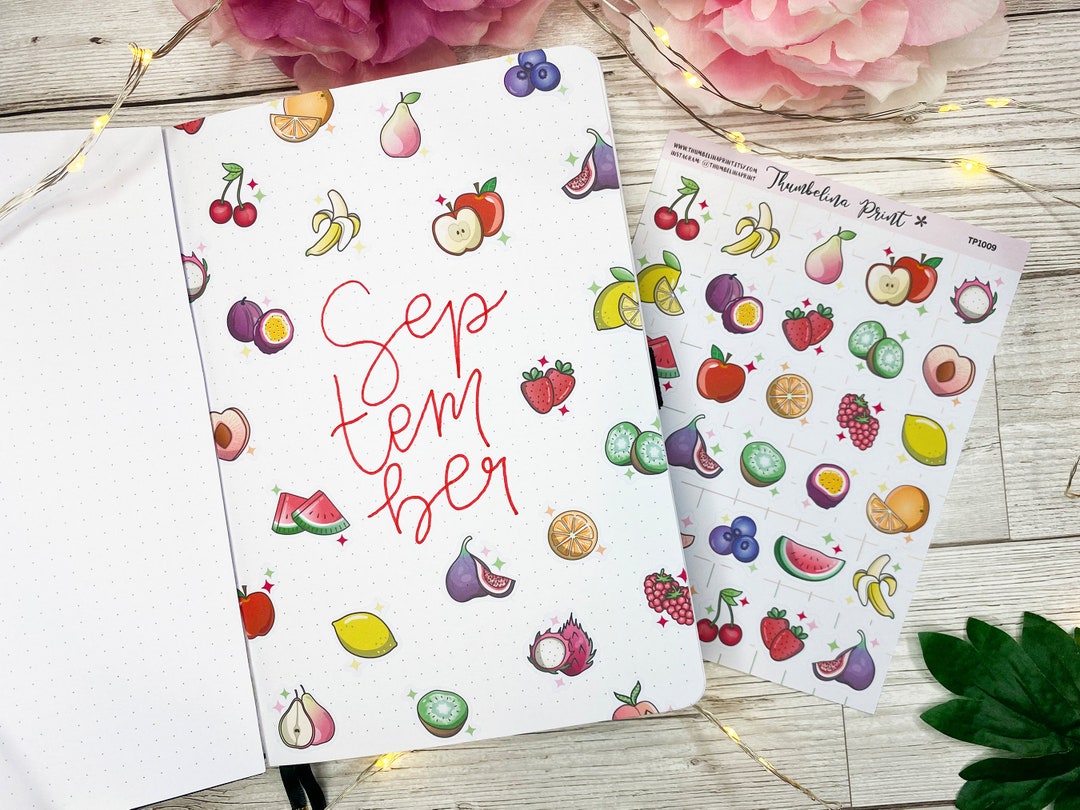 Sep
tem
ber
WWW.THUMBELINAPRINT.ETSY.COM
INSTAGRAM: @THUMBELINAPRINT
Thumbelina Print *
TP1009